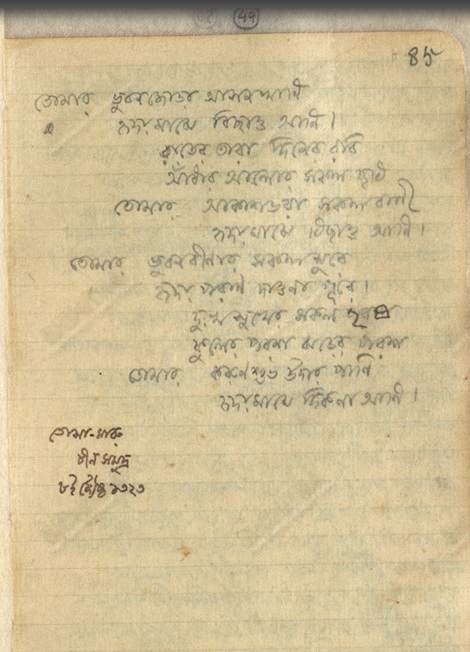 49
85
তোমার ভুবনজোড়া আসনখানি
হৃদয় মাঝে বিছাও আনি।
রাতের তারা দিনের রবি
আঁধার আলোর সকল ছবি
তোমার আকাশভরা সকল বাণী
হৃদয় মাঝে বিছাও আনি।
তোমার ভুবনবীণার সকল সুরে
হৃদয় পরাণ দাওনা পূরে।
দুঃখ সুখের সকল হরষ
ফুলের পরশ ঝড়ের পরশ
তোমার করুণ শুভ উদার পাণি
হৃদয় মাঝে দিক্‌না আনি।
তোসা-মারু
চীন সমুদ্র
৮ই জ্যৈষ্ঠ ১৩২৩